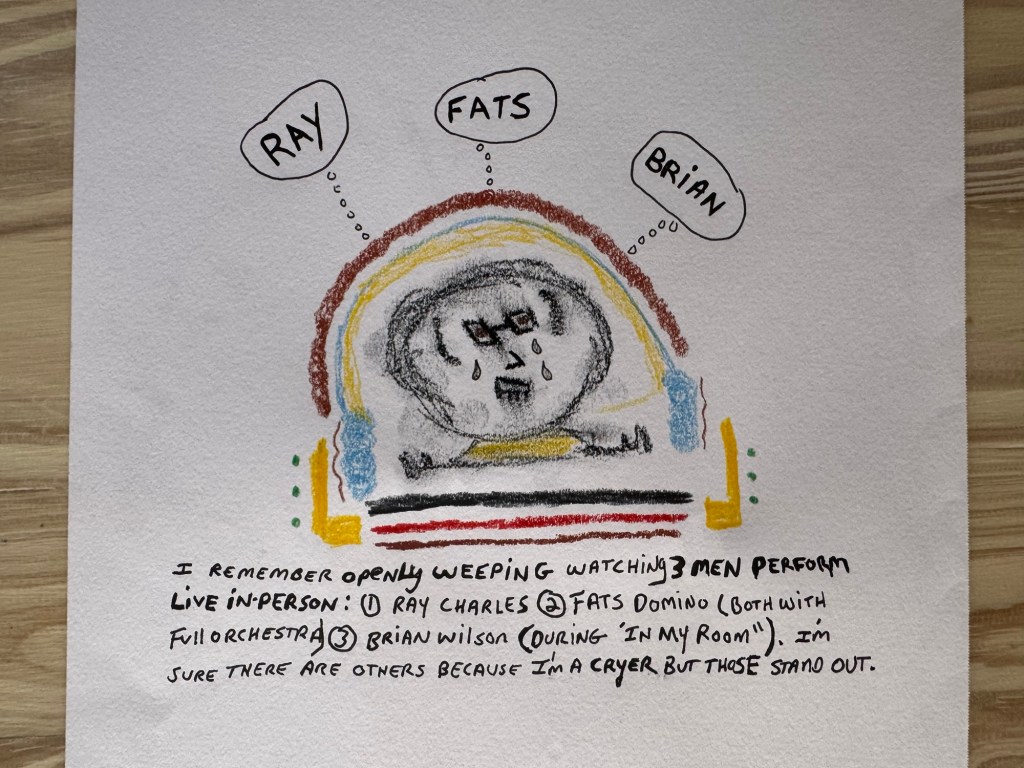 RAY
FATS
BRIAN
I REMEMBER OPENLY WEEPING WATCHING 3 MEN PERFORM
LIVE IN-PERSON: ① RAY CHARLES ② FATS DOMINO (BOTH WITH
FULL ORCHESTRA) ③ BRIAN WILSON (DURING "IN MY ROOM"). I'M
SURE THERE ARE OTHERS BECAUSE I'M A CRYER BUT THOSE STAND OUT.